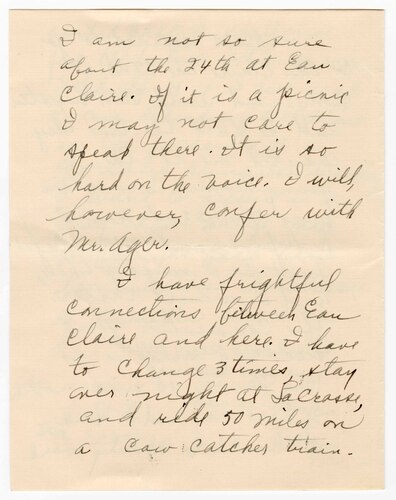 I am not so sure
about the 24th at Eau
Claire. If it is a picnic
I may not care to
speak there. It is so
hard on the voice. I will,
however, confer with
Mr. Ager.
I have frightful
connections between Eau
Claire and here. I have
to change 3 times, stay
over night at LaCrosse,
and ride 50 miles on
a cow catcher train.